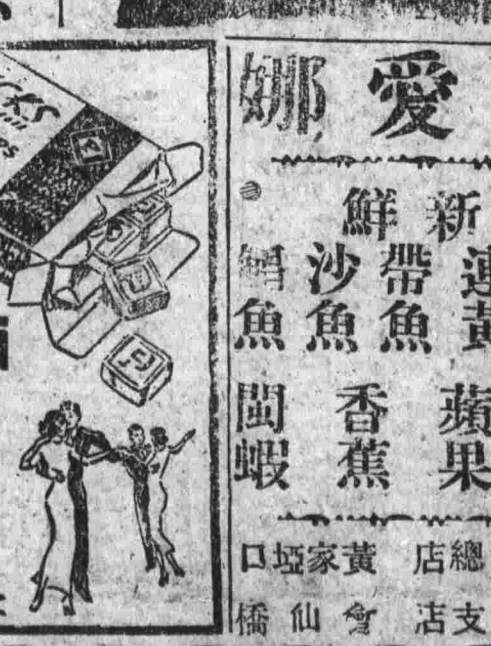 愛娜
新鮮
連黃
帶魚
沙魚
魚
蘋果
香蕉
閩蝦
總店 黃家埡口
支店 會仙橋